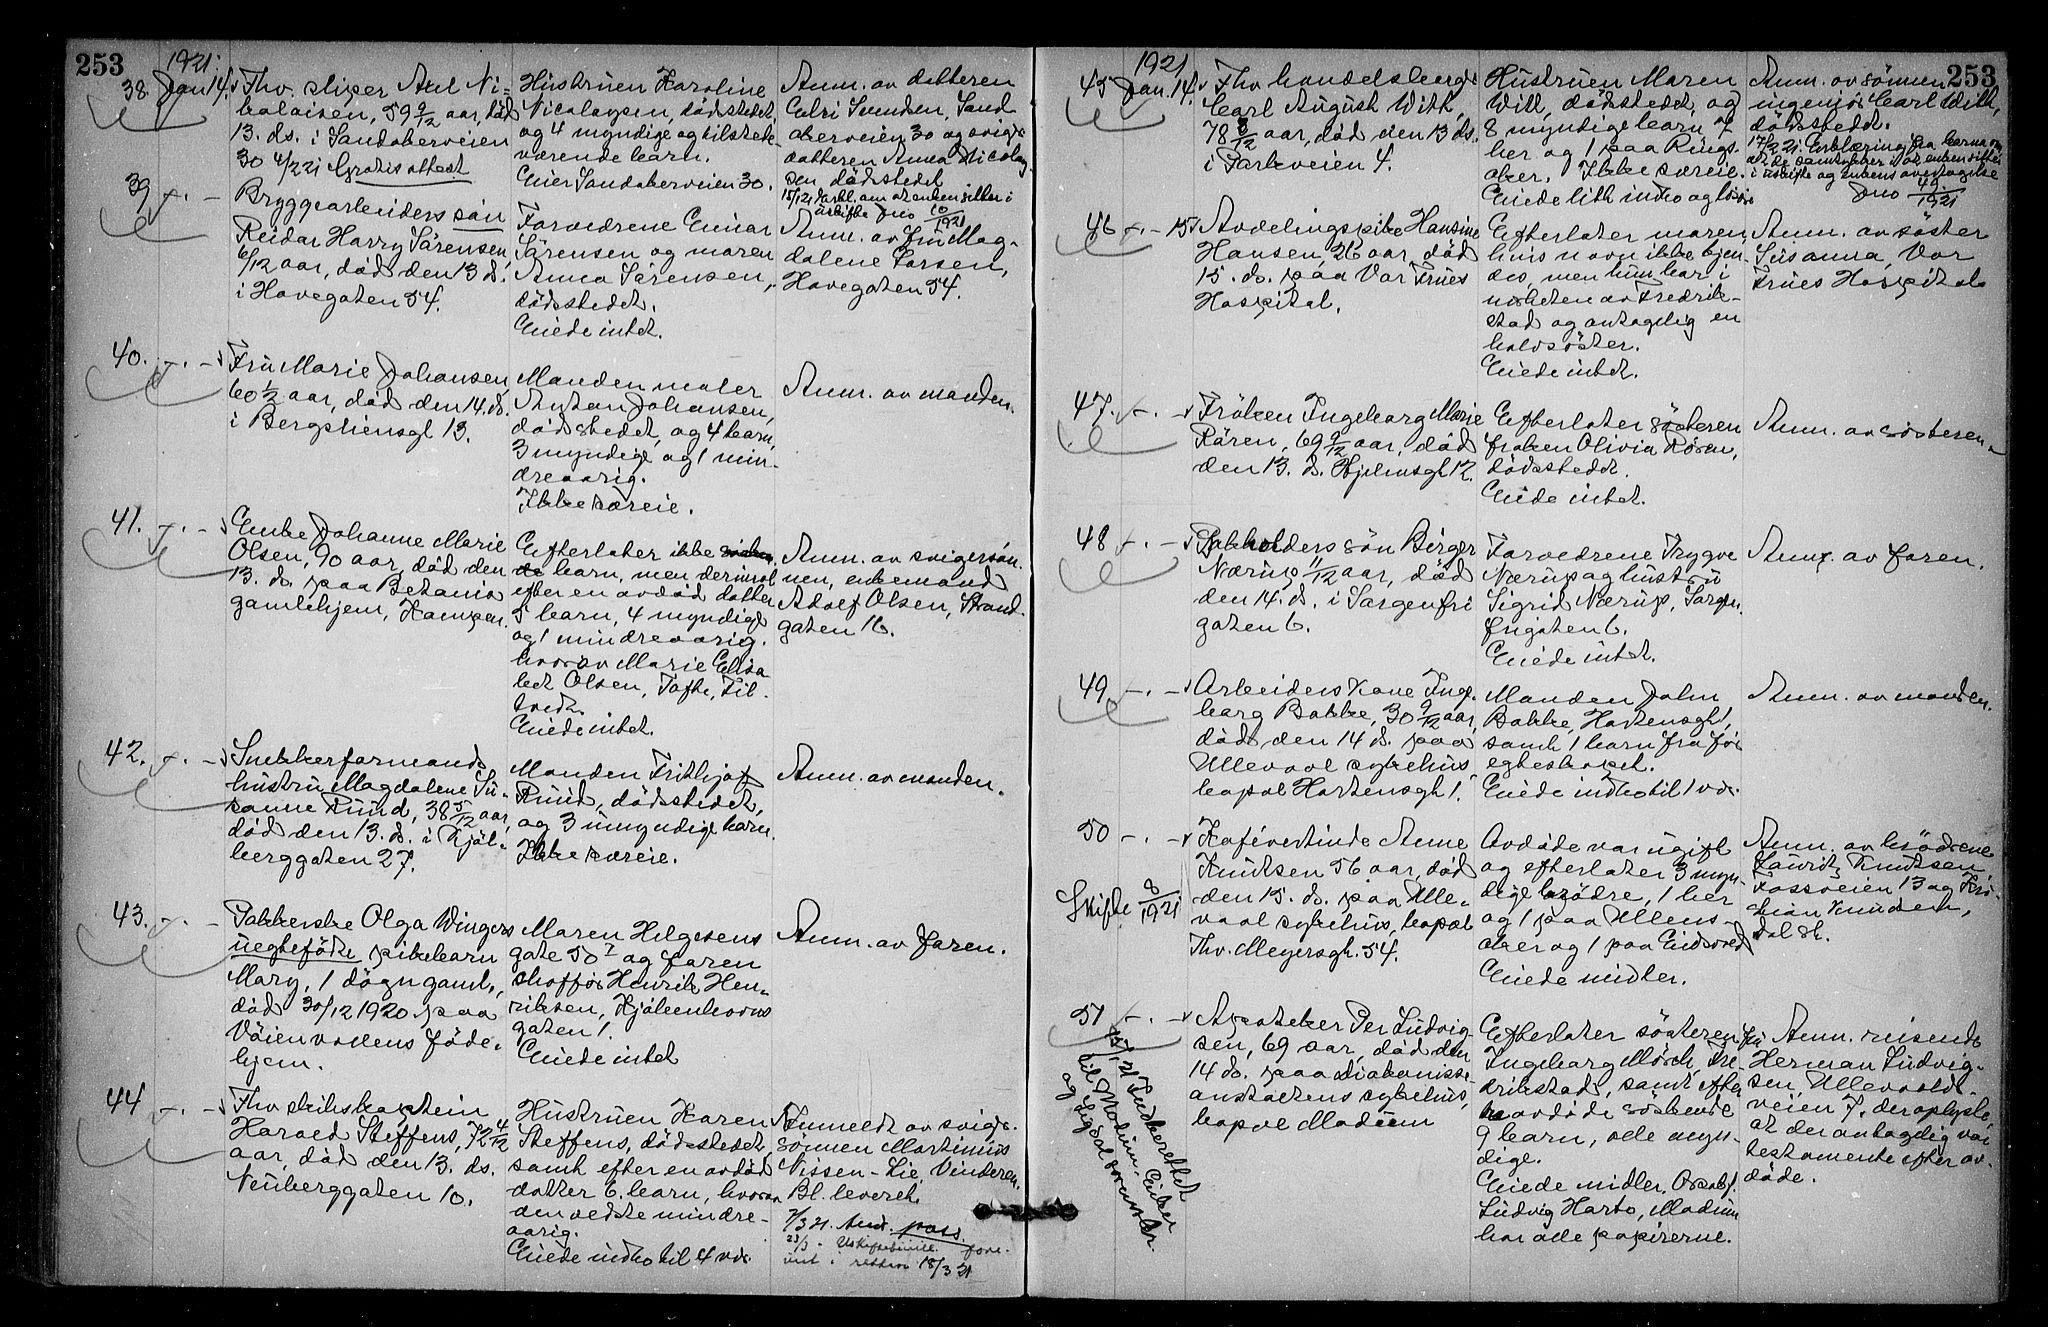 253
1921.
38. Jan 14. Thv. sliper Axel Ni-
kolaisen, 59 9/12 aar, död
13. ds. i Sandakerveien
30 4/2 21 Gratis attest
Hustruen Karoline
Nicolaysen, dödsstedet,
og 4 myndige og tilstede-
værende barn.
Eier Sandakerveien 30.
Anm. av datteren
Sunden, Sand
akerveien 30 og sviger
datteren Anna Nicolay
sen dödsstedet
39 -"- - Bryggearbeiders sön
Reidar Harry Sörensen
6/12 aar, död den 13 ds.
i Havegaten 54.
Forældrene Einar
Sörensen og maren
Anna Sörensen,
dödsstedet.
Eiede intet.
Anm. av fru Mag-
dalene Larsen,
Havegaten 54.
40. -"- - Fru Marie Johansen
60 1/2 aar, död den 14. ds.
i Bergsliensgt 13.
Manden maler
Anton Johansen,
dödsstedet, og 4 barn,
3 myndige og 1 min-
dreaarig.
Ikke særeie.
Anm. av manden.
41. -"- - Enke Johanne Marie
Olsen, 90 aar, död den
13. ds. paa Betania
gamlehjem, Kampen.
Efterlater ikke
barn, men derimot
efter en avdöd datter
5 barn, 4 myndige
og 1 mindreaarig.
hvorav Marie Elisa
bet Olsen, Tofte, Fil-
tvedt.
Eiede intet.
Anm. av svigersön-
nen, enkemand
Adolf Olsen, Strand-
gaten 16.
42. -"- - Snekkerformands
hustru Magdalene Su-
sanne Ruud, 38 5/12 aar,
död den 13. ds. i Kjöl-
berggaten 27.
Manden Frithjof
Ruud, dödsstedet,
og 3 umyndige barn.
Ikke særeie.
Anm. av manden.
43. -"- - Pakkerske Olga Wingers
uegtefödte pikebarn
Mary, 1 dögn gamt.,
död 30/12 1920 paa
Vöienvoldens föde-
hjem.
Maren Helgesens
gate 50 I og faren
chofför Henrik Hen-
riksen, Kjölenhorns
gaten 1.
Eiede intet
Anm. av faren.
44 -"- - Thv. skibskaptein
Harald Steffens, 72 4/12
aar, död den 13. ds.
Neuberggaten 10.
Hustruen Karen
Steffens, dödsstedet,
samt efter en avdöd
datter 6 barn, hvorav
den ældste mindre-
aarig.
Eiede indbo til 4 vær.
Anmeldt av sviger-
sönnen Martinius
Nissen-Lie, Vinderen.
Bl. leveret.
7/3 21. Anm. pass.
23/3
18/3 21
253
1921
45 Jan. 14. Thv. handelsborger
Carl August With,
78 8/12 aar, död den 13 ds.
i Parkveien 4.
Hustruen Maren
With, dödsstedet, og
8 myndige barn, 7
her og 1 paa Rings-
aker. Ikke særeie.
Eiede litt indbo og lösöre
Anm. av sönnen
ingeniör Carl With,
dödsstedet.
17/2 21. Erklæring fra barna om
at de samtykker i at enken sitter
i uskifte og enkens overtagelse
Jno 49/1921
46 -"- - 15 Avdelingspike Hansine
Hansen, 26 aar, död
15. ds. paa Vor Frues
Hospital.
Efterlater maren,
hvis navn ikke kjen-
des, men hun bor i
nærheten av Fredrik-
stad og antagelig en
halvsöster.
Eiede intet.
Anm. av söster
Susanna, Vor
Frues Hospital
47. -"- - Fröken Ingeborg Marie
Rören, 69 9/12 aar, död
den 13. ds. Hjelmsgt 12.
Efterlater sösteren
fröken Olivia Rören,
dödsstedet.
Eiede intet.
Anm. av sösteren.
48 -"- - Pakholders sön Birger
Nærup 11/12 aar, död
den 14. ds. i Sorgenfri
gaten 6.
Forældrene Trygve
Nærup og hustru
Sigrid Nærup, Sorgen-
frigaten 6.
Eiede intet.
Anm. av faren.
49 -"- - Arbeiders kone Inge-
borg Bakke, 30 9/12 aar,
död den 14 ds. paa
Ullevaal sykehus,
bopæl Hortensgt 1.
Manden John
Bakke, Hortensgt 1,
samt 1 barn fra för
egteskapet.
Eiede indbo til 1 vær.
Anm. av manden.
50 -"- - Kafévertinde Anne
Knutsen 56 aar, död
den 15. ds. paa Ulle-
vaal sykehus, bopæl
Thv. Meyersgt. 54.
Skifte 8/1921
Avdöde var ugift
og efterlater 3 myn-
dige brödre, 1 her
og 1 paa Ullens-
aker og 1 paa Eidsvold
Eiede midler.
Anm. av brödrene
Lauritz Knutsen,
Fossveien 13 og Kri-
stian Knudsen,
51 -"- - Apoteker Per Ludvig-
sen, 69 aar, död den
14 ds. paa Diakonisse-
anstaltens sykehus,
bopæl Modum
til Modum, Eiker
og Sigdal sorenskr.
Efterlater sösteren fru
Ingeborg Mörch, Fre-
drikstad, samt efter
avdöde söskende
9 barn, alle myn-
dige.
Eiede midler. O.r.sakf.
Ludvig Harbo, Modum
har alle papirerne.
Anm. reisende
Herman Ludvig-
sen, Ullevolds-
veien 7, der oplyste,
at der antagelig var
testamente efter av-
döde.